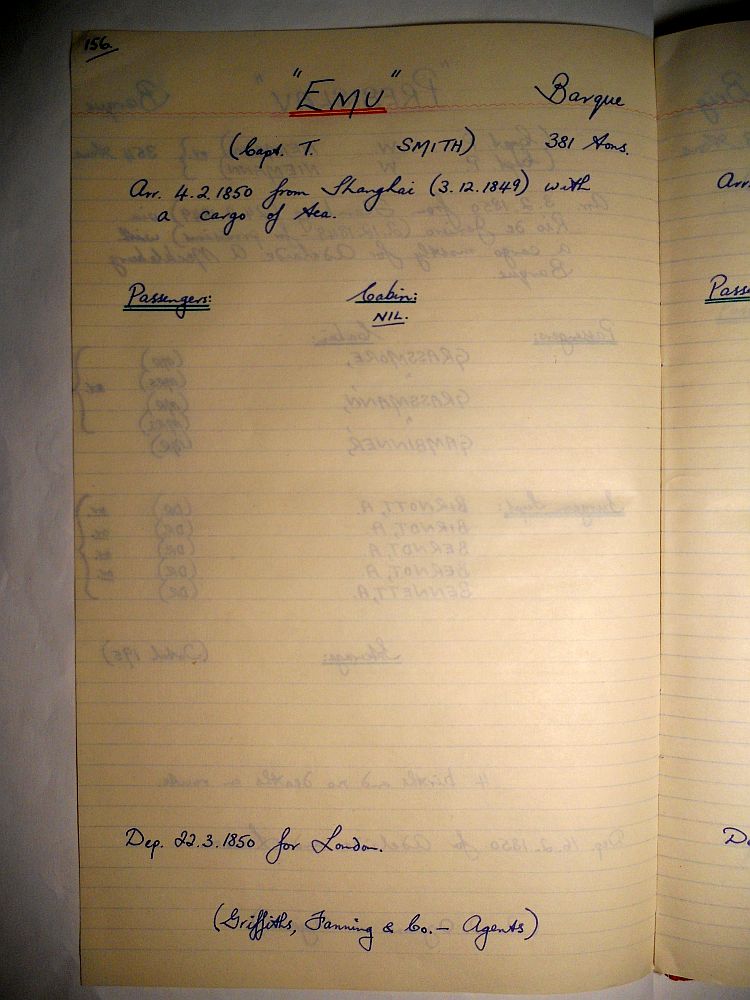 156
"EMU" Barque
(Capt. T. SMITH) 381 tons.
Arr. 4.2.1850 from Shanghai (3.12.1849) with
a cargo of tea.
Passengers: Cabin:
NIL.
Dep. 22.3.1850 for London.
(Griffiths, Fanning & Co. – Agents)